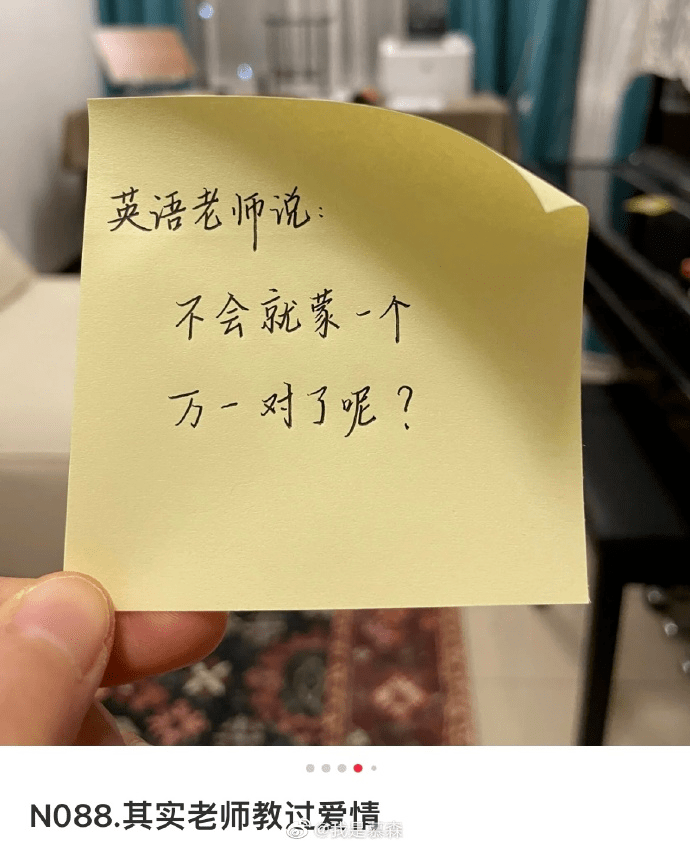 英语老师说:
不会就蒙一个
万一对了呢?
N088.其实老师教过爱情
@我是慕森